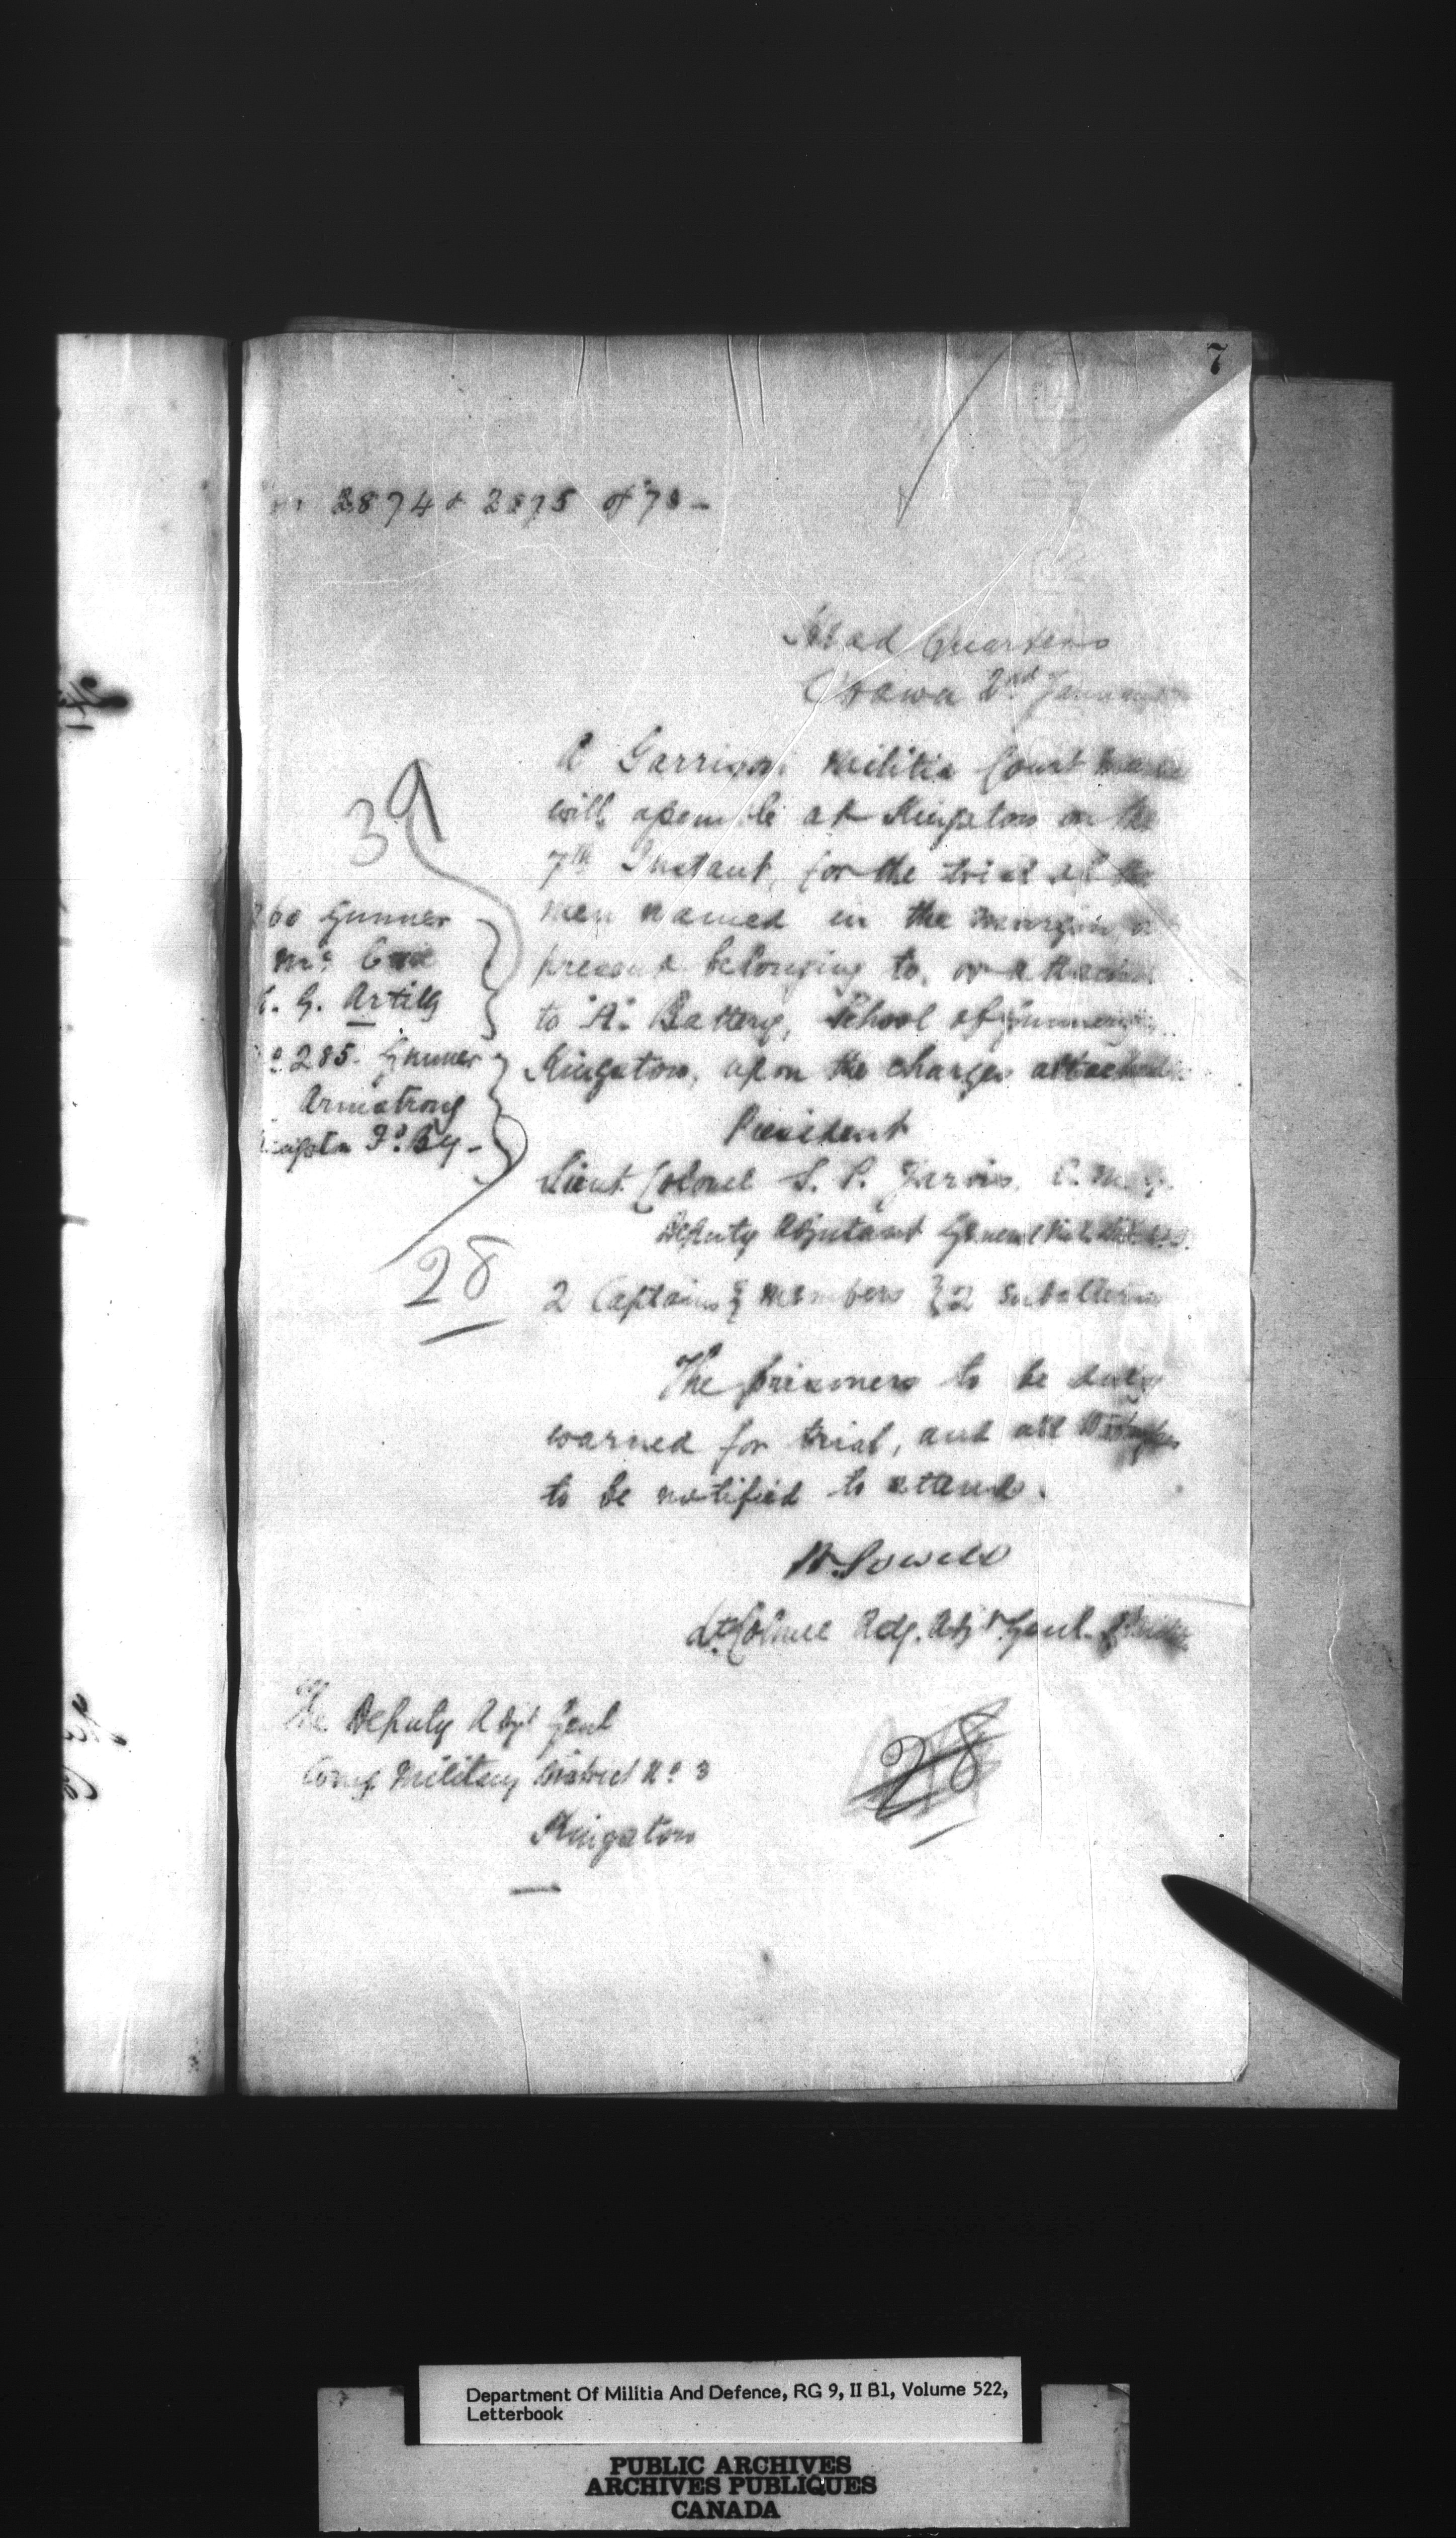 7
2874 & 2875 of 73 -
Head Quarters
Ottawa 2nd January
A Garrison Militia Court
will assemble at Kingston on the
7th Instant, for the trial of the
men named in the margin, at
present belonging to, or attached
to "A" Battery, School of Gunnery,
Kingston, upon the charges attached
39
60 Gunner
Mc
G. Artilly
285. Gunner
Armstrong
Fd. By -
28
President
Lieut Colonel S. P. Jarvis, C.M.G.
Deputy Adjutant General
2 Captains } Members { 2 Subalterns
The prisoners to be duly
warned for trial, and all
to be notified to attend.
W. Powell
Lt. Colonel Actg. Adjt Genl.
The Deputy Adjt Genl
Comg Military District No 3
Kingston
28
Department Of Militia And Defence, RG 9, II B1, Volume 522,
Letterbook
PUBLIC ARCHIVES
ARCHIVES PUBLIQUES
CANADA